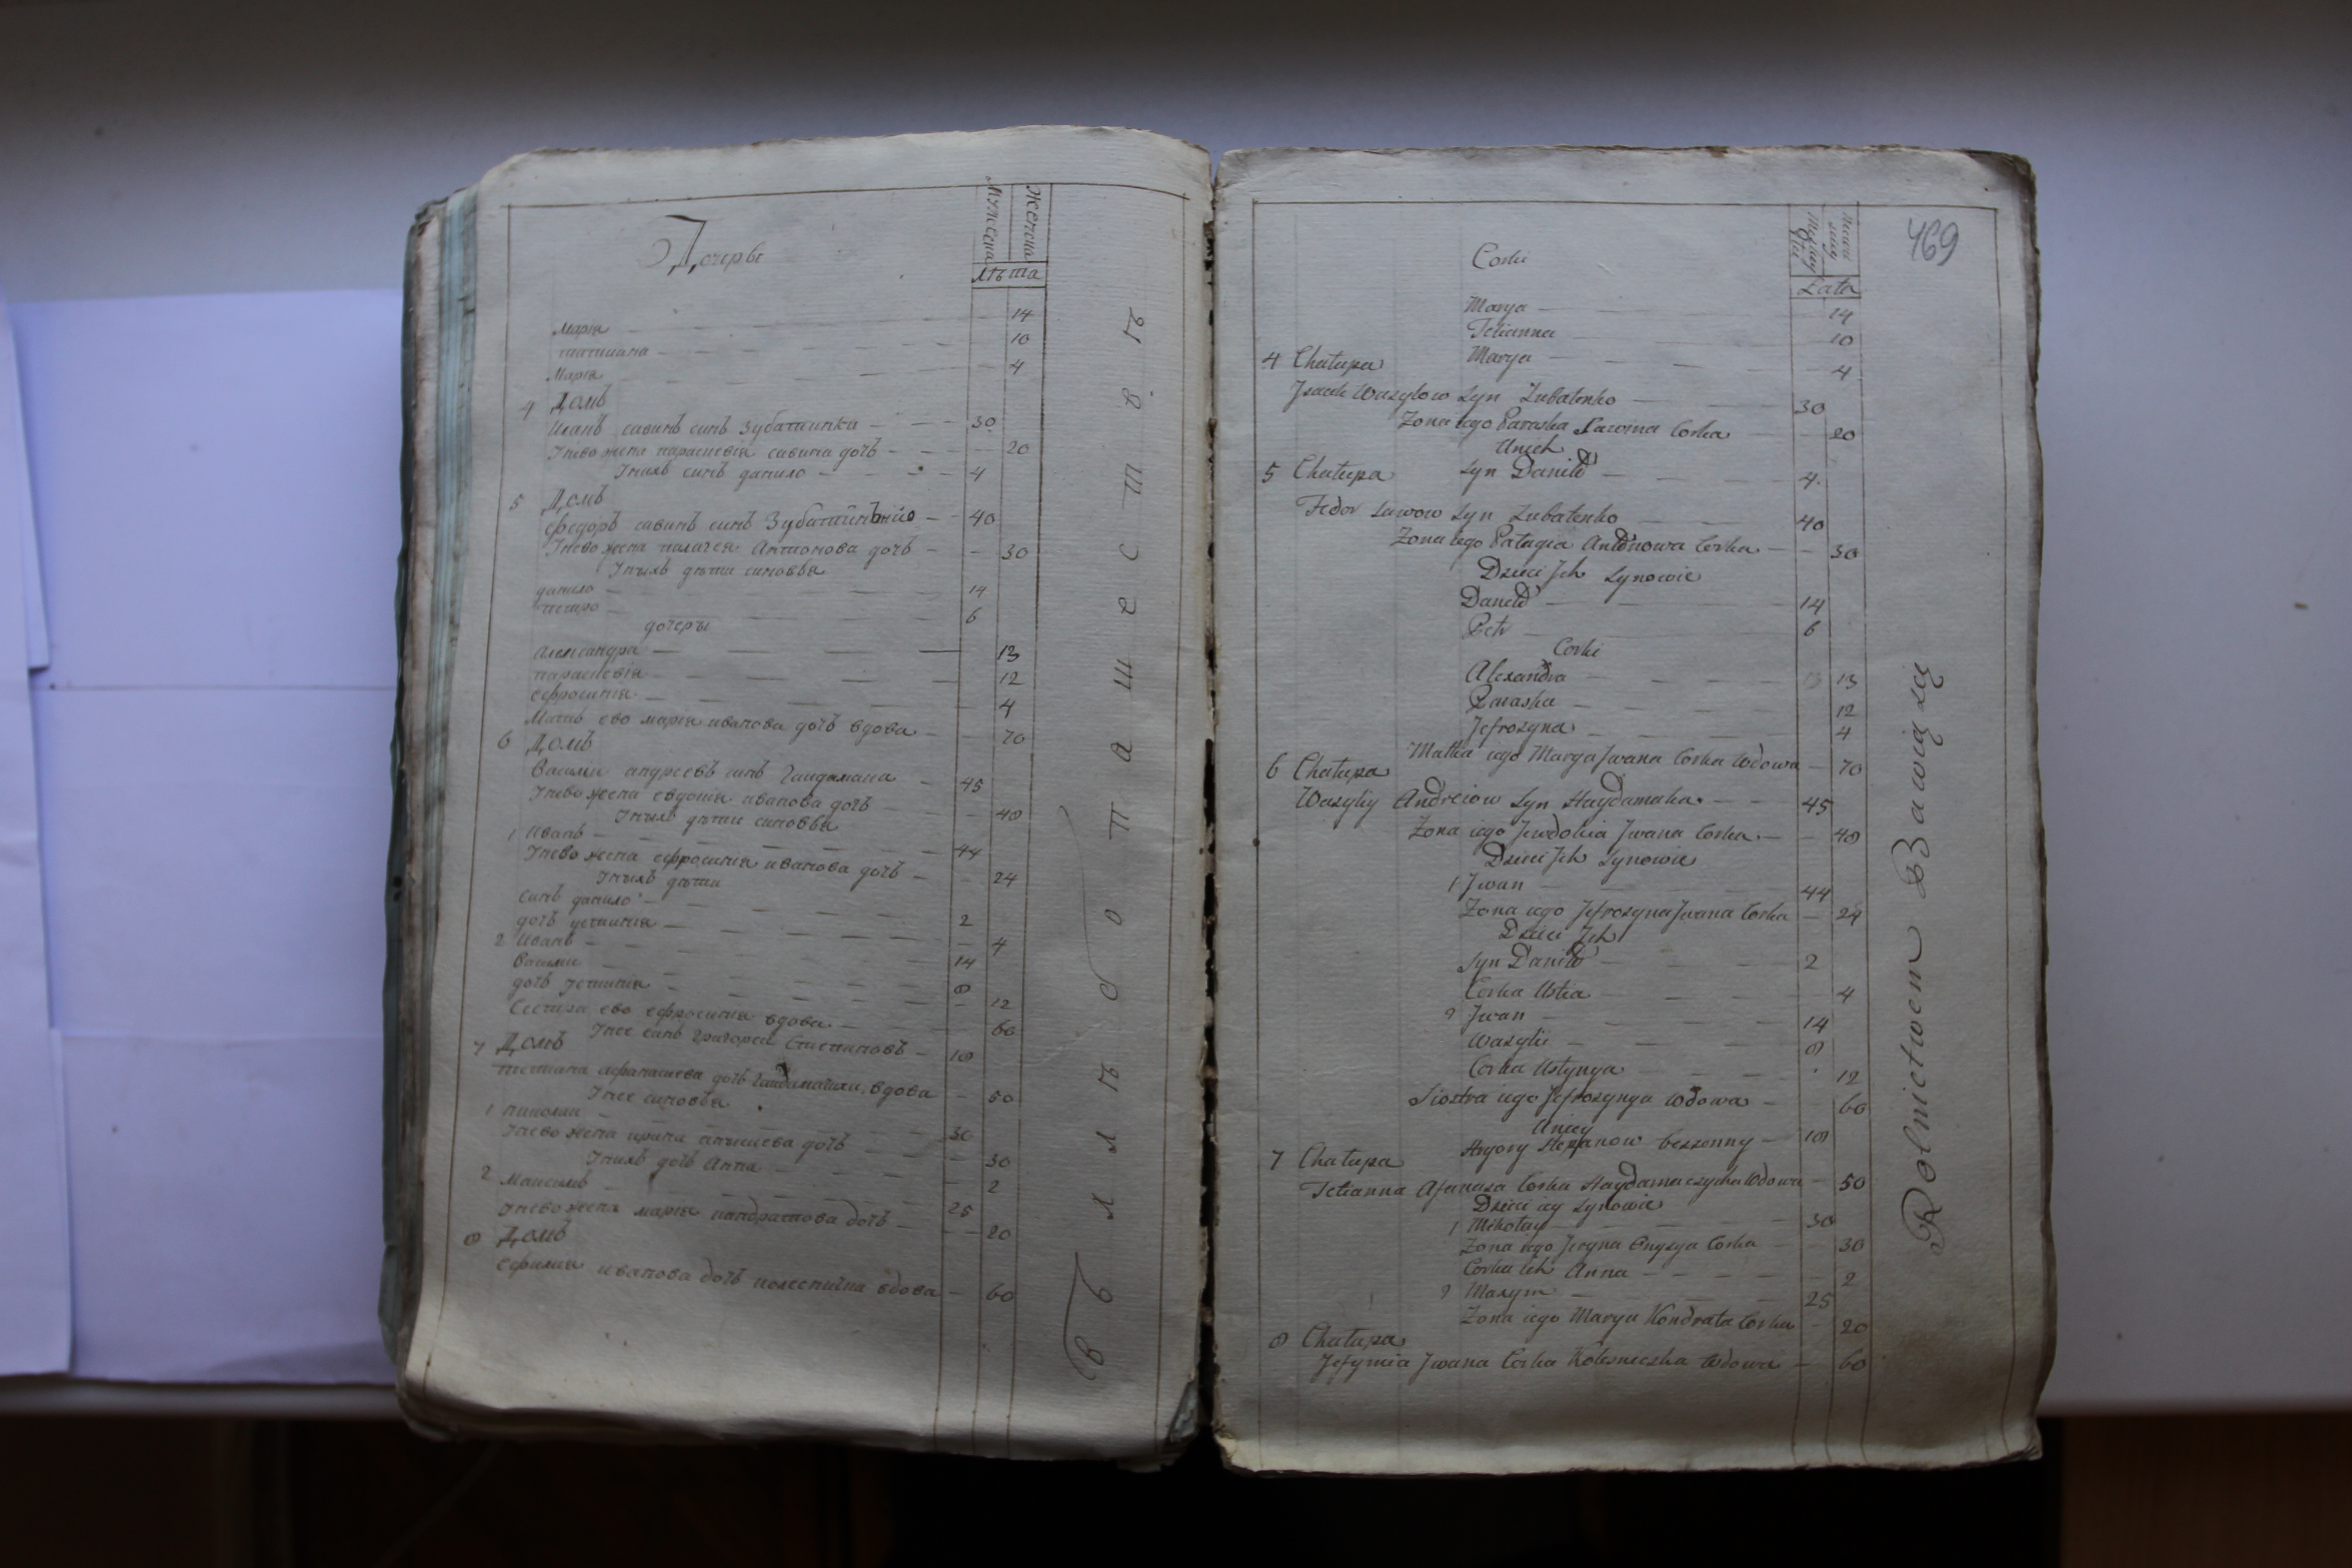 Дочеры
Мужеска
Женска
Лѣта
Марія — 14
татиана — 10
Марія — 4
4 Домъ
савинъ синъ Зубатинка — 30
Унево жена параскевія савина дочь — 20
Унихъ синъ данило — 4
5 Домъ
Федоръ савинъ синъ — 40
Унево жена палагея Антонова дочь — 30
Унихъ дѣти синовья
данило — 14
петро — 6
дочеры
Александра — 13
параскевія — 12
ефросинія — 4
Матъ ево марія иванова дочь вдова — 70
6 Домъ
Василии андреевъ синъ Гайдамака — 45
Унево жена евдокія иванова дочь — 40
Унихъ дѣти синовья
1 Иванъ — 44
Унево жена ефросинія иванова дочь — 24
Унихъ дѣти
синъ данило — 2
дочь устинія — 4
2 Иванъ — 14
Василии — 8
дочь устинія — 12
Сестра ево ефросинія вдова — 60
Унее синъ Григореи Степановъ — 18
7 Домъ
татиана афанасиева дочь вдова — 50
Унее синовья
1 николаи — 30
Унево жена ирина дочь — 30
Унихъ дочь Анна — 2
2 Максимъ — 25
Унево жена марія кандратова дочь — 20
8 Домъ
Ефимия иванова дочь вдова — 60
Въ хлѣбопашествѣ
469
Corki
Lata
Marya — 14
Tetianna — 10
Marya — 4
4 Chałupa
Jsack Wasylow Syn Zubatenko — 30
Zona iego Paraska Sawina Corka — 20
Unich
Syn Daniło — 4
5 Chałupa
Fedor Sawow Syn Zubatenko — 40
Zona iego Pałagia Antonowa Corka — 30
Dzieci Jch Synowie
Daniło — 14
Petr — 6
Corki
Alexandra — 13
Paraska — 12
Jefrozyna — 4
Matka iego Marya Jwana Corka Wdowa — 70
6 Chałupa
Wasyliy Andreiow Syn Haydamaka — 45
Zona iego Jewdokia Jwana Corka — 40
Dzieci Jch Synowie
1 Jwan — 44
Zona iego Jefrozyna Jwana Corka — 24
Dzieci Jch
Syn Daniło — 2
Corka Ustia — 4
2 Jwan — 14
Wasylii — 8
Corka Ustynya — 12
Siostra iego Jefrozynya Wdowa — 60
Uniey
Hryory Stepanow bezzenny — 18
7 Chałupa
Tetianna Afanasa Corka Haydamaczycha Wdowa — 50
Dzieci iey Synowie
1 Mikołay — 30
Zona iego Jryna Corka — 30
Corka ich Anna — 2
2 Maxym — 25
Zona iego Marya Kondrata Corka — 20
8 Chałupa
Jefymia Jwana Corka Kolesniczka Wdowa — 60
Rolnictwem Bawią się